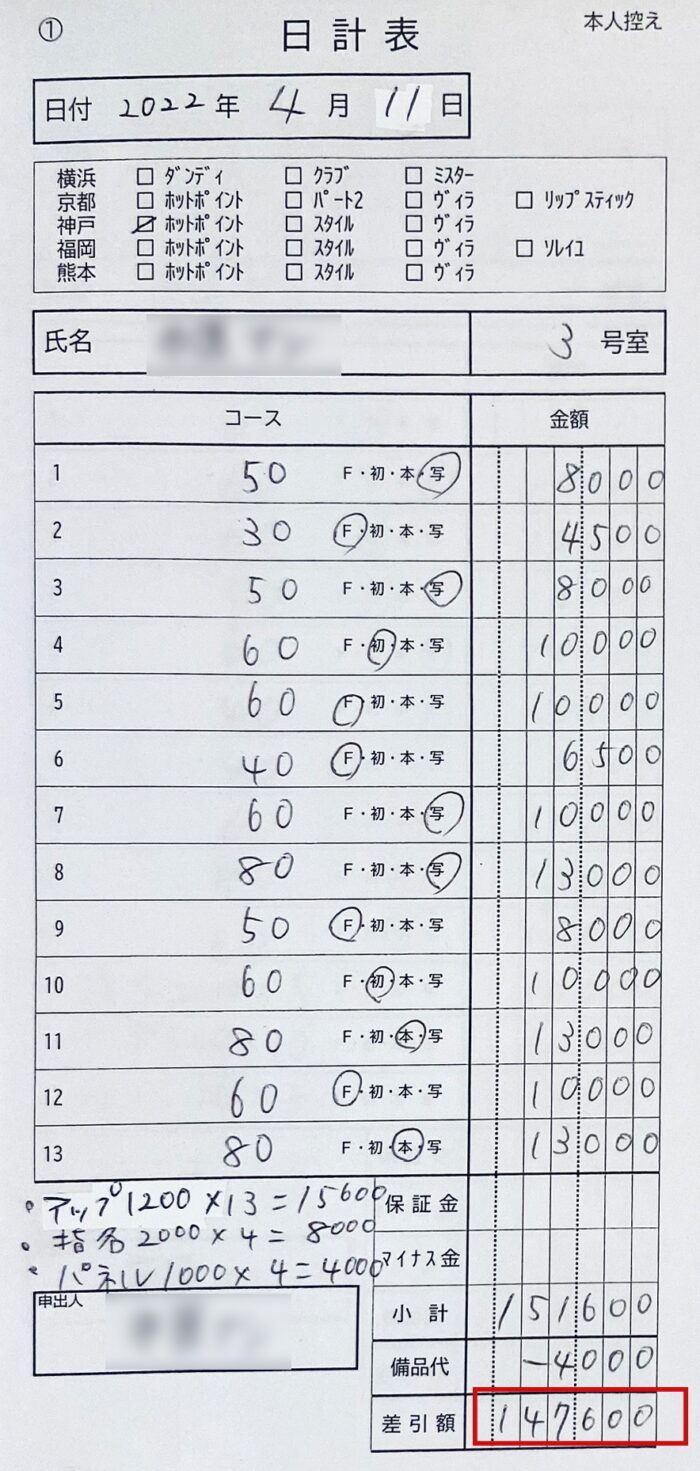 ① 日計表 本人控え
日付 2022年 4月 11日
横浜 □ ﾀﾞﾝﾃﾞｨ □ ｸﾗﾌﾞ □ ﾐｽﾀｰ
京都 □ ﾎｯﾄﾎﾟｲﾝﾄ □ ﾊﾟｰﾄ2 □ ｳﾞｨﾗ □ ﾘｯﾌﾟｽﾃｨｯｸ
神戸 ☑ ﾎｯﾄﾎﾟｲﾝﾄ □ ｽﾀｲﾙ □ ｳﾞｨﾗ
福岡 □ ﾎｯﾄﾎﾟｲﾝﾄ □ ｽﾀｲﾙ □ ｳﾞｨﾗ □ ｿﾚｲﾕ
熊本 □ ﾎｯﾄﾎﾟｲﾝﾄ □ ｽﾀｲﾙ □ ｳﾞｨﾗ
氏名 3 号室
コース 金額
1 50 F・初・本・写 8000
2 30 F・初・本・写 4500
3 50 F・初・本・写 8000
4 60 F・初・本・写 10000
5 60 F・初・本・写 10000
6 40 F・初・本・写 6500
7 60 F・初・本・写 10000
8 80 F・初・本・写 13000
9 50 F・初・本・写 8000
10 60 F・初・本・写 10000
11 80 F・初・本・写 13000
12 60 F・初・本・写 10000
13 80 F・初・本・写 13000
・アップ1200×13=15600
・指名2000×4=8000
・パネル1000×4=4000
保証金
マイナス金
申出人
小計 151600
備品代 -4000
差引額 147600